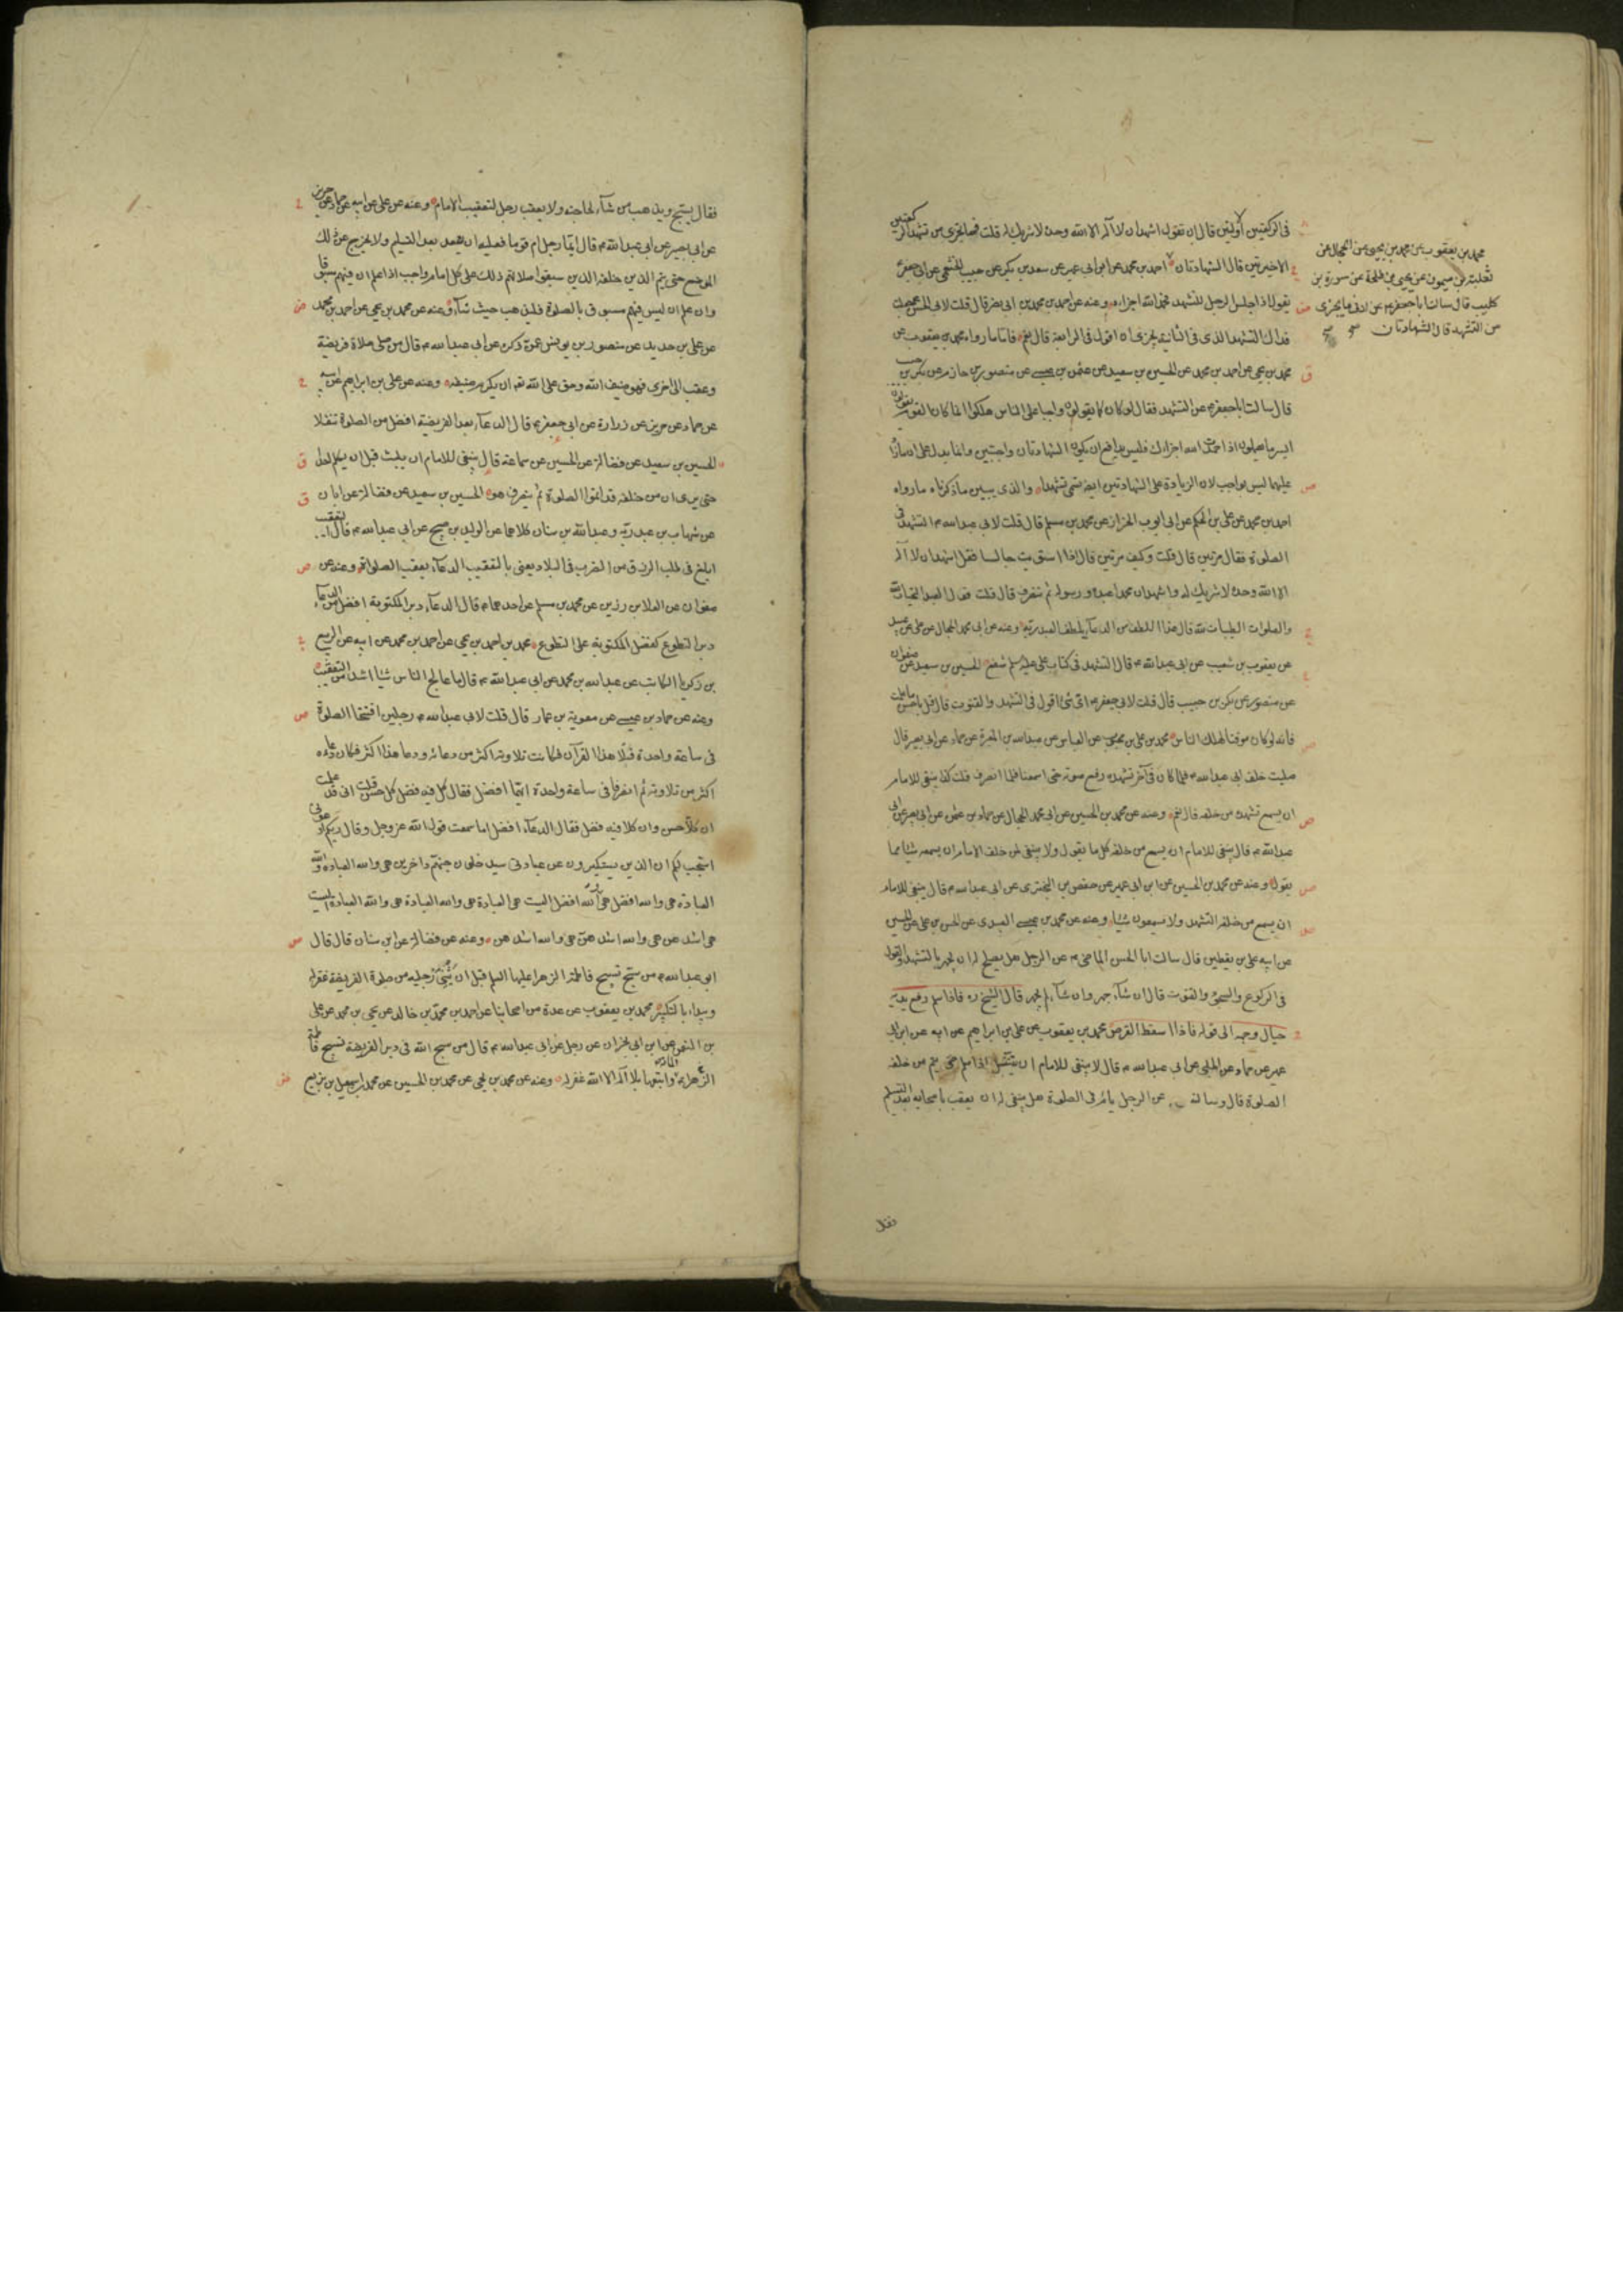 فى الركعتين الاولتين قال ان تقول اشهد ان لا اله الا الله وحده لا شريك له قلت فما يجزى من تشهد الركعتين
الاخيرتين قال الشهادتان احمد بن محمد عن ابن ابى عمير عن سعد بن بكر عن حبيب الخثعمى عن ابى جعفر
يقول اذا جلس الرجل للتشهد فحمد الله اجزاه وعنه عن احمد بن محمد بن ابى نصر قال قلت لابى الحسن جعلت
فداك التشهد الذى فى الثانية يجزى ان اقول فى الرابعة قال نعم فاما ما رواه محمد بن يعقوب عن
محمد بن يحيى عن احمد بن محمد عن الحسين بن سعيد عن عثمن بن عيسى عن منصور بن حازم عن بكر بن حبيب
قال سالت ابا جعفر عن التشهد فقال لو كان كما يقولون واجبا على الناس هلكوا انما كان القوم يقولون
ايسر ما يعلمون اذا حمدت الله اجزاك فليس بنافع ان يكون الشهادتان واجبتين وانما يدل على ان ما زاد
عليهما ليس بواجب لان الزيادة على الشهادتين ايضا تسمى تشهدا والذى يبين ما ذكرناه ما رواه
احمد بن محمد عن على بن الحكم عن ابى ايوب الخزاز عن محمد بن مسلم قال قلت لابى عبد الله التشهد فى
الصلوة فقال مرتين قال قلت وكيف مرتين قال اذا استويت جالسا فقل اشهد ان لا اله
الا الله وحده لا شريك له واشهد ان محمدا عبده ورسوله ثم تنصرف قال قلت قول العبد التحيات لله
والصلوات الطيبات لله قال هذا اللطف من الدعاء يلطف العبد ربه وعنه عن ابى محمد الحجال عن على بن عبيد
عن يعقوب بن شعيب عن ابى عبد الله قال التشهد فى كتاب على عليه السلم شفع الحسين بن سعيد عن صفوان
عن منصور عن بكر بن حبيب قال قلت لابى جعفر اى شئ اقول فى التشهد والقنوت قال قل باحسن ما علمت
فانه لو كان موقتا لهلك الناس محمد بن على بن محبوب عن العباس عن عبد الله بن المغيرة عن حماد عن ابى بصير قال
صليت خلف ابى عبد الله فلما كان فى آخر تشهده رفع صوته حتى اسمعنا فلما انصرف قلت كذا ينبغى للامام
ان يسمع تشهده من خلفه قال نعم وعنه عن محمد بن الحسين عن ابى محمد الحجال عن حماد بن عثمن عن ابى بصير عن ابى
عبد الله قال ينبغى للامام ان يسمع من خلفه كل ما يقول ولا ينبغى لمن خلف الامام ان يسمعه شيئا مما
يقول وعنه عن محمد بن الحسين عن ابن ابى عمير عن حفص بن البخترى عن ابى عبد الله قال ينبغى للامام
ان يسمع من خلفه التشهد ولا يسمعون شيئا وعنه عن محمد بن عيسى العبيدى عن الحسن بن على عن الحسين
عن ابيه على بن يقطين قال سالت ابا الحسن الماضى عن الرجل هل يصلح له ان يجهر بالتشهد والقول
فى الركوع والسجود والقنوت قال ان شاء جهر وان شاء لم يجهر قال الشيخ ره فاذا سلم رفع يديه
حيال وجهه الى قوله فاذا سقط القرص محمد بن يعقوب عن على بن ابراهيم عن ابيه عن ابن ابى
عمير عن حماد عن الحلبى عن ابى عبد الله قال لا ينبغى للامام ان ينتقل اذا سلم حتى يتم من خلفه
الصلوة قال وسالته عن الرجل يام فى الصلوة هل ينبغى له ان يعقب باصحابه بعد التسليم
فقال
محمد بن يعقوب عن محمد بن يحيى عن الحجال عن
ثعلبة بن ميمون عن يحيى بن طلحة عن سورة بن
كليب قال سالت ابا جعفر عن ادنى ما يجزى
من التشهد قال الشهادتان صح
فقال يسبح ويذهب من شاء لحاجته ولا يعقب رجل لتعقيب الامام وعنه عن على عن ابيه عن حماد عن حريز
عن ابى بصير عن ابى عبد الله قال ايما رجل ام قوما فعليه ان يقعد بعد التسليم ولا يخرج عن ذلك
الموضع حتى يتم الذين خلفه الذين سبقوا صلاتهم ذلك على كل امام واجب اذا علم ان فيهم مسبوقا
وان علم ان ليس فيهم مسبوق بالصلوة فليذهب حيث شاء وعنه عن محمد بن يحيى عن احمد بن محمد
عن على بن حديد عن منصور بن يونس عمن ذكره عن ابى عبد الله قال من صلى صلاة فريضة
وعقب الى اخرى فهو ضيف الله وحق على الله تعه ان يكرم ضيفه وعنه عن على بن ابراهيم عن ابيه
عن حماد عن حريز عن زرارة عن ابى جعفر قال الدعاء بعد الفريضة افضل من الصلوة تنفلا
الحسين بن سعيد عن فضالة عن الحسين عن سماعة قال ينبغى للامام ان يلبث قبل ان يكلم احدا
حتى يرى ان من خلفه قد اتموا الصلوة ثم ينصرف هو الحسين بن سعيد عن فضالة عن ابان
عن شهاب بن عبد ربه وعبد الله بن سنان كلاهما عن الوليد بن صبيح عن ابى عبد الله قال التعقيب
ابلغ فى طلب الرزق من الضرب فى البلاد يعنى بالتعقيب الدعاء بعقب الصلواة وعنه عن
صفوان عن العلا بن رزين عن محمد بن مسلم عن احدهما قال الدعاء دبر المكتوبة افضل من الدعاء
دبر التطوع كفضل المكتوبة على التطوع محمد بن احمد بن يحيى عن احمد بن محمد عن ابيه عن الربيع
بن زكريا الكاتب عن عبد الله بن محمد عن ابى عبد الله قال ما عالج الناس شيئا اشد من التعقيب
وعنه عن حماد بن عيسى عن معوية بن عمار قال قلت لابى عبد الله رجلين افتتحا الصلوة
فى ساعة واحدة فتلا هذا القرآن فكانت تلاوته اكثر من دعائه ودعا هذا اكثر فكان دعاؤه
اكثر من تلاوته ثم انصرفا فى ساعة واحدة ايهما افضل فقال كل فيه فضل كل حسن قلت انى قد علمت
ان كلا حسن وان كلا فيه فضل فقال الدعاء افضل اما سمعت قول الله عز وجل وقال ربكم ادعونى
استجب لكم ان الذين يستكبرون عن عبادتى سيدخلون جهنم داخرين هى والله العبادة هى والله
العبادة هى والله افضل هى والله افضل اليست هى العبادة هى والله العبادة هى والله العبادة اليست
هى اشدهن هى والله اشدهن هى والله اشدهن وعنه عن فضالة عن ابن سنان قال قال
ابو عبد الله من سبح تسبيح فاطمة الزهرا عليها السلم قبل ان يثنى رجليه من صلوة الفريضة غفر له
ويبداء بالتكبير محمد بن يعقوب عن عدة من اصحابنا عن احمد بن محمد بن خالد عن يحيى بن محمد عن على
بن النعمن عن ابن ابى نجران عن رجل عن ابى عبد الله قال من سبح الله فى دبر الفريضة تسبيح فاطمة
الزهراء المائة واتبعها بلا اله الا الله غفر له وعنه عن محمد بن يحيى عن محمد بن الحسين عن محمد بن اسمعيل بن بزيع